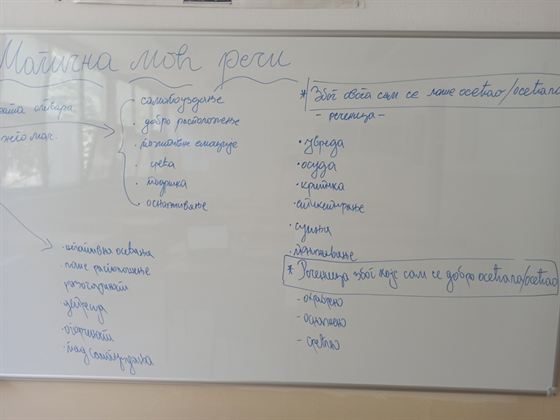 Магична моћ речи
отвара
самопоуздање
· добро расположење
· позитивне емоције
· срећа
· подршка
· оснаживање
его мач.
· негативна осећања
· лоше расположење
разочарати
· увреда
· огорчити
· пад самопоуздања
* Због овога сам се лоше осећао/осећала
- реченица -
· увреда
· осуда
· критика
· етикетирање
· сумња
· понижавање
* Реченица због које сам се добро осећала/осећао
- охрабрено
- оснажено
- срећно